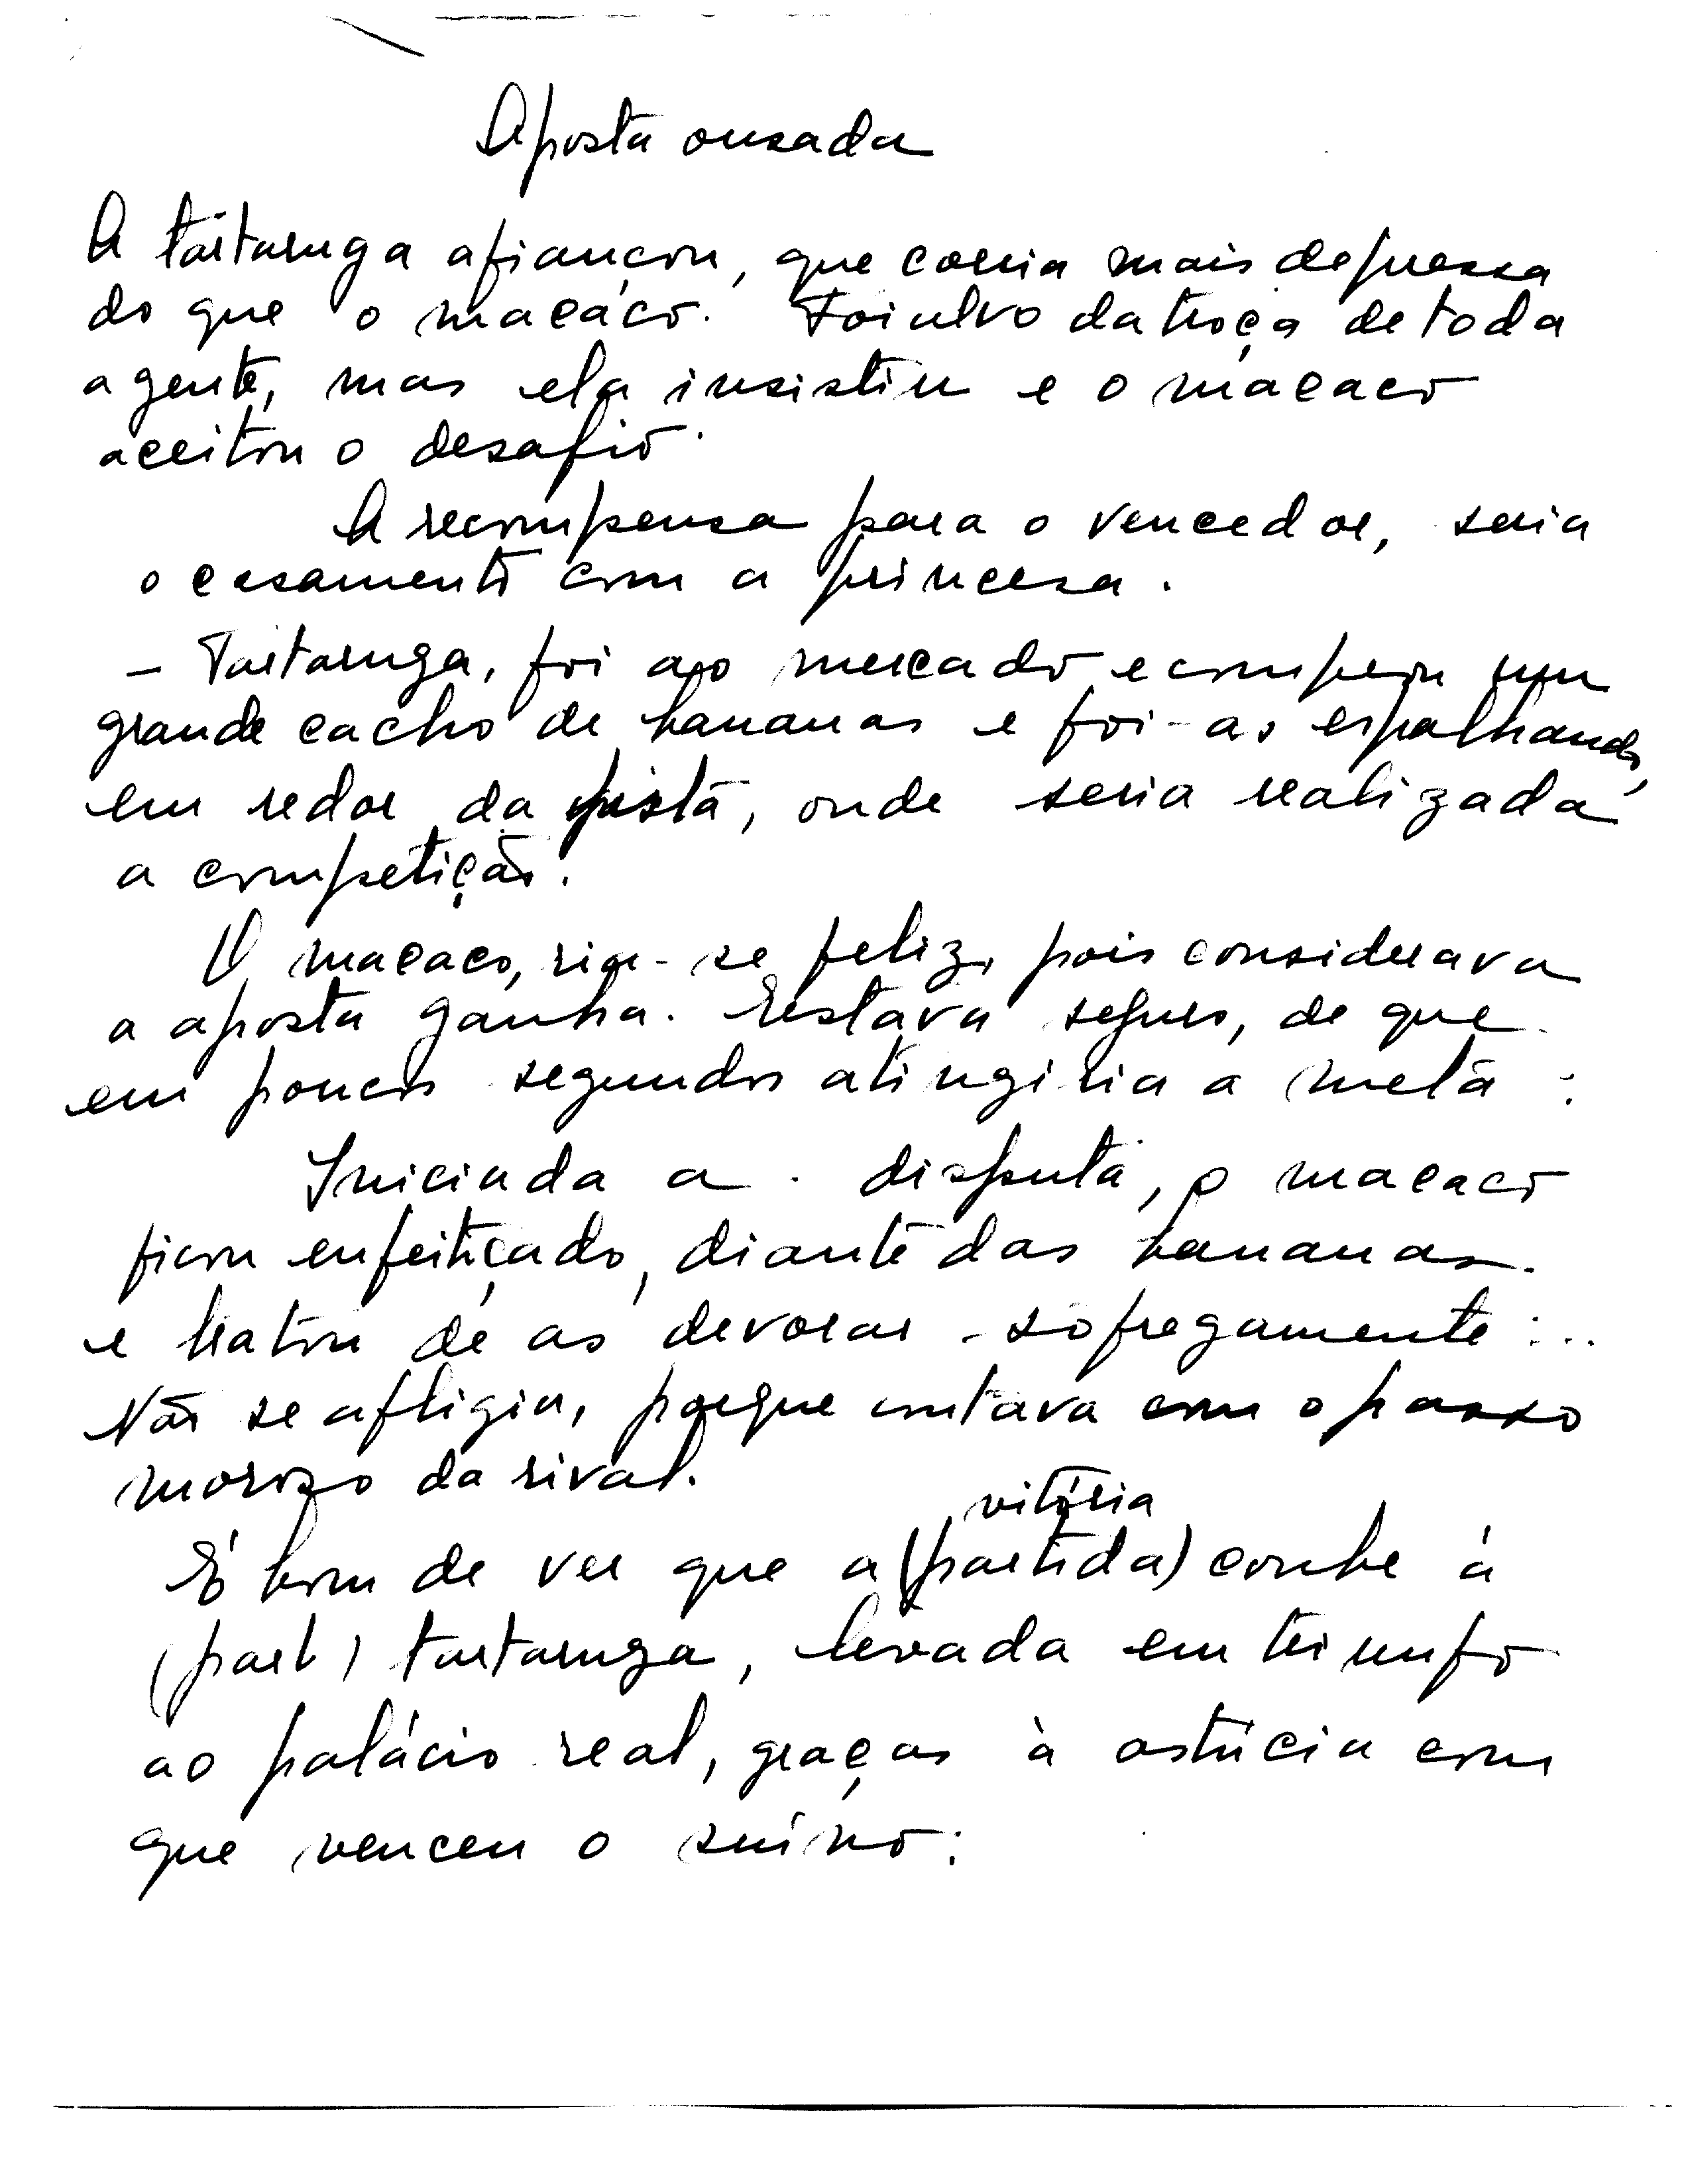 Aposta ousada
A tartaruga afiançou, que corria mais depressa
do que o macaco. Foi alvo da troça de toda
a gente, mas ela insistiu e o macaco
aceitou o desafio.
A recompensa para o vencedor, seria
o casamento com a princesa.
- Tartaruga, foi ao mercado e comprou um
grande cacho de bananas e foi-as espalhando,
em redor da pista, onde seria realizada
a competição.
O macaco, ria-se feliz, pois considerava
a aposta ganha. Estava seguro, de que
em poucos segundos atingiria a meta:
Iniciada a disputa, o macaco
ficou enfeitiçado, diante das bananas.
e tratou de as devorar sofregamente...
Não se afligia, porque contava com o passo
moroso da rival.
vitória
É bom de ver que a (partida) coube à
(part) tartaruga, levada em triunfo
ao palácio real, graças à astúcia com
que venceu o suíno: